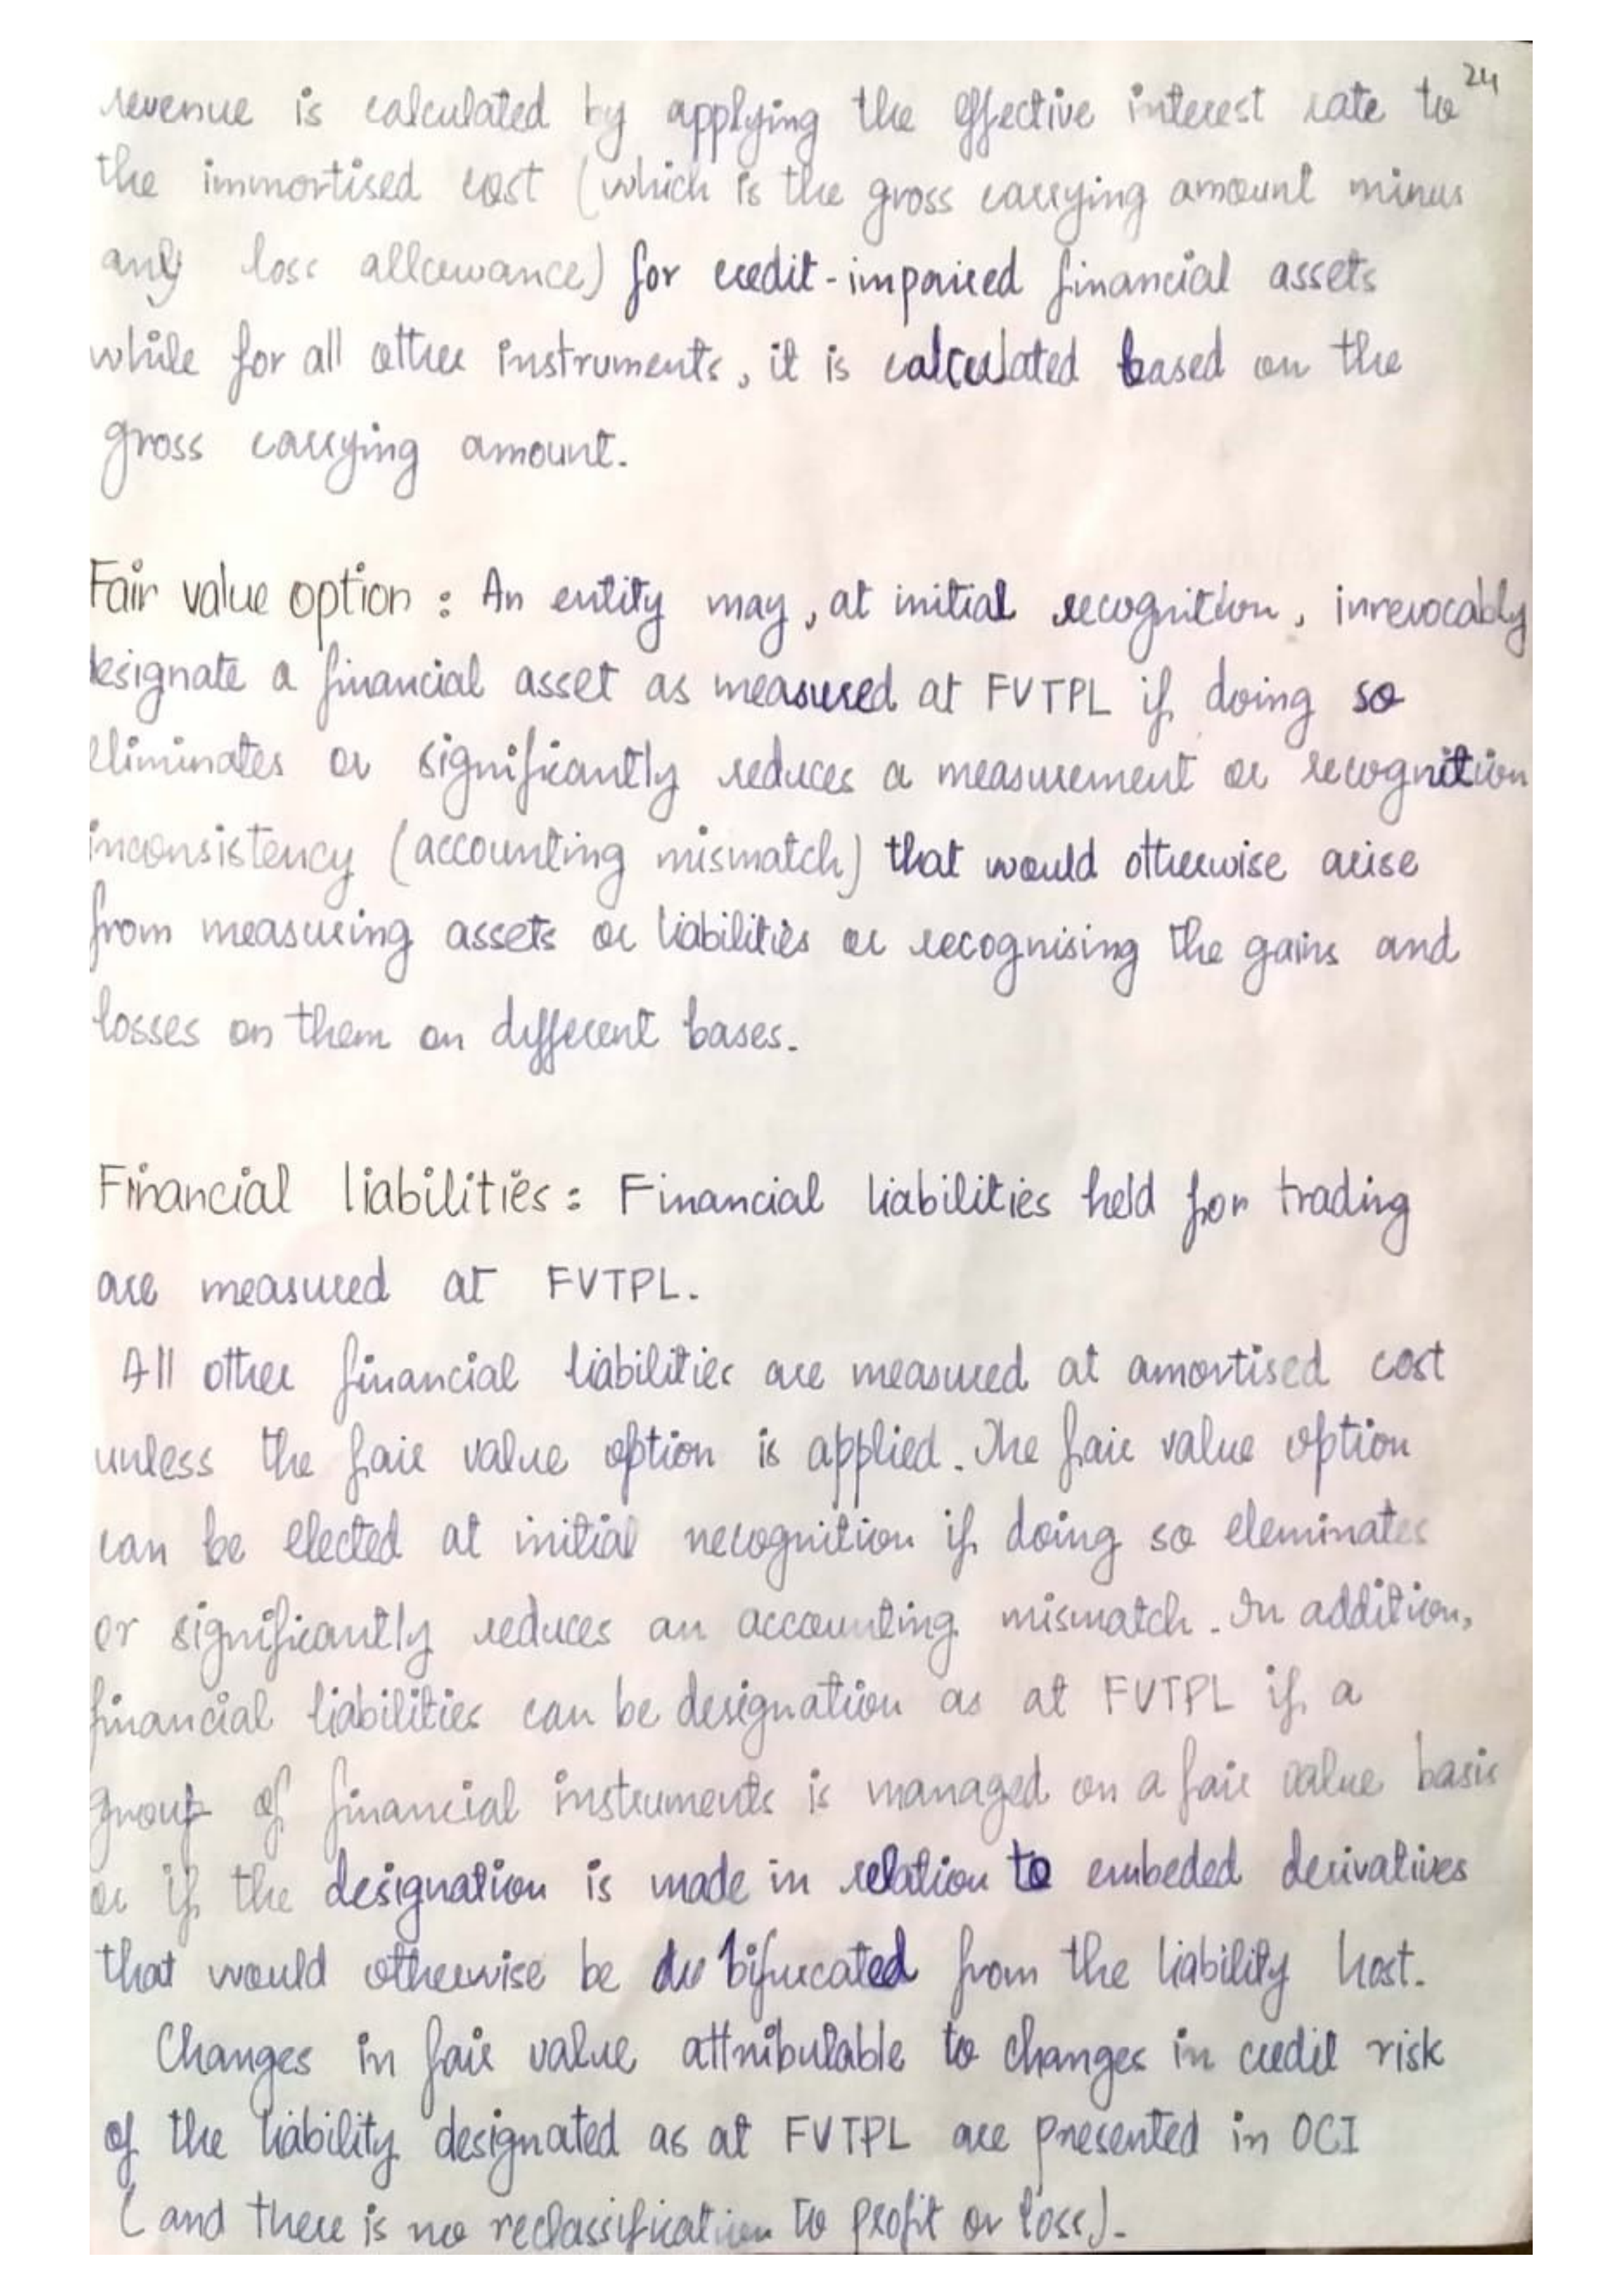 24
revenue is calculated by applying the effective interest rate to
the immortised cost (which is the gross carrying amount minus
any loss allowance) for credit-impaired financial assets
while for all other instruments, it is calculated based on the
gross carrying amount.
Fair value option : An entity may, at initial recognition, inrevocably
designate a financial asset as measured at FVTPL if doing so
eliminates or significantly reduces a measurement or recognition
inconsistency (accounting mismatch) that would otherwise arise
from measuring assets or liabilities or recognising the gains and
losses on them on different bases.
Financial liabilities : Financial liabilities held for trading
are measured at FVTPL.
All other financial liabilities are measured at amortised cost
unless the fair value option is applied. The fair value option
can be elected at initial recognition if doing so eleminates
or significantly reduces an accounting mismatch. In addition,
financial liabilities can be designation as at FVTPL if a
group of financial instruments is managed on a fair value basis
or if the designation is made in relation to embeded derivatives
that would otherwise be bifurcated from the liability host.
Changes in fair value attributable to changes in credit risk
of the liability designated as at FVTPL are presented in OCI
(and there is no reclassification to profit or loss).